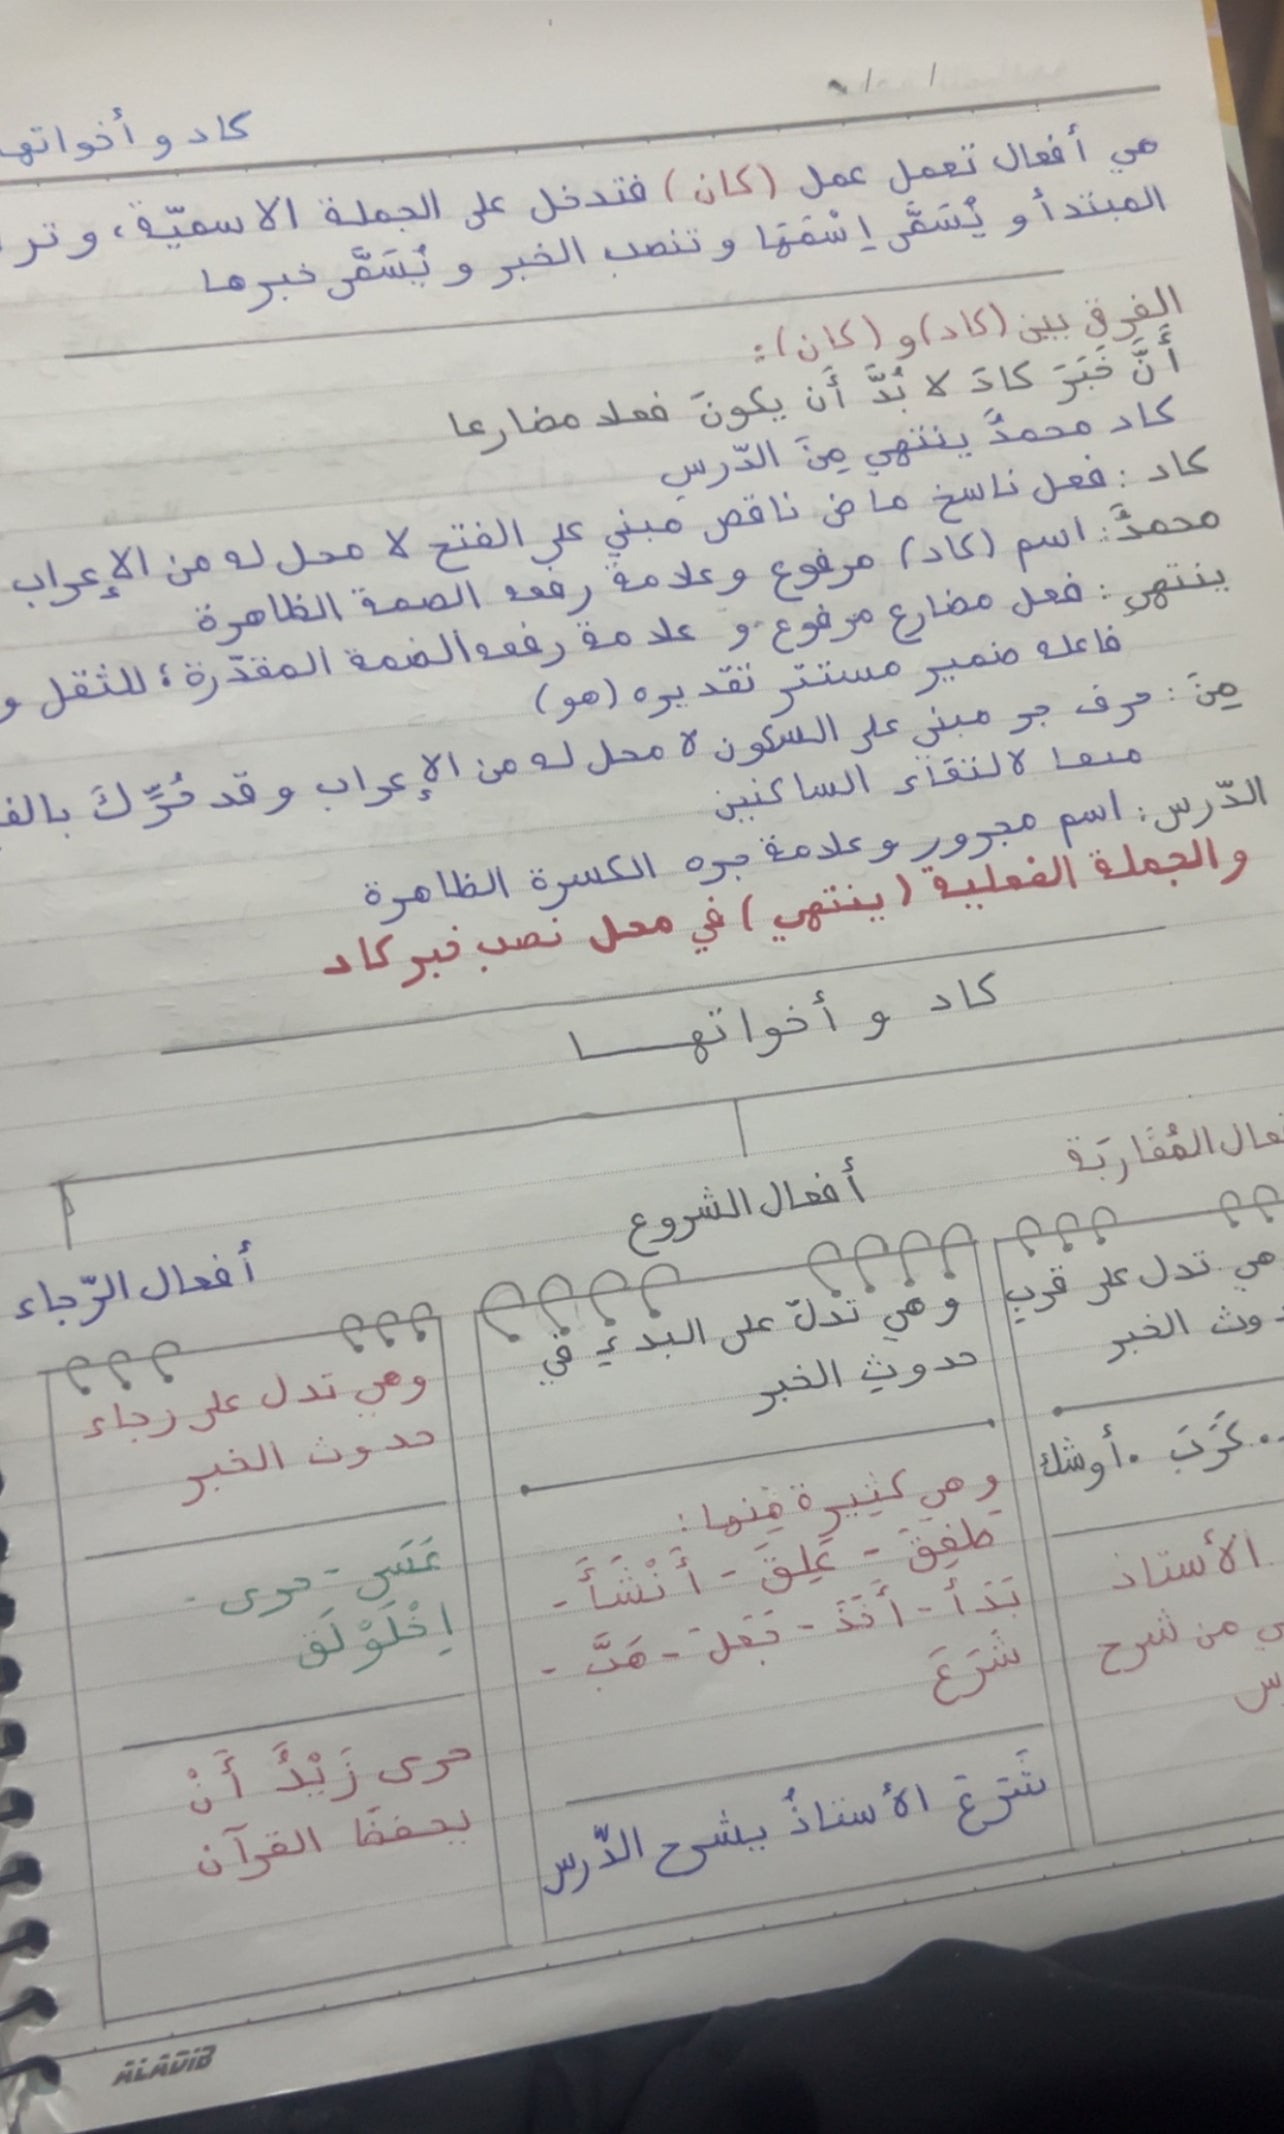 كاد و أخواتها
هي أفعال تعمل عمل (كان) فتدخل على الجملة الاسميّة، و تر
المبتدأ و يُسَمَّى اِسْمَهَا و تنصب الخبر و يُسَمَّى خبرها
الفرق بين (كاد) و (كان):
أَنَّ خَبَرَ كادَ لا بُدَّ أَن يكونَ فعلا مضارعا
كاد محمدٌ ينتهي مِنَ الدّرسِ
كاد: فعل ناسخ ماض ناقص مبني على الفتح لا محل له من الإعراب
محمدٌ: اسم (كاد) مرفوع وعلامة رفعه الضمة الظاهرة
ينتهي: فعل مضارع مرفوع و علامة رفعه الضمة المقدّرة؛ للثقل و
فاعله ضمير مستتر تقديره (هو)
مِنَ: حرف جر مبني على السكون لا محل له من الإعراب وقد حُرِّكَ بالف
منعا لالتقاء الساكنين
الدّرس: اسم مجرور وعلامة جره الكسرة الظاهرة
والجملة الفعلية (ينتهي) في محل نصب خبر كاد
كاد و أخواتهــا
عال المُقَارَبَة
هي تدل على قرب
دوث الخبر
كَرَبَ . أوشك
الأستاذ
ي من شرح
س
أفعال الشروع
وهي تدلّ على البدءِ في
حدوثِ الخبر
وهي كثيرة مِنها:
طَفِقَ - عَلِقَ - أَنْشَأَ -
بَدَأَ - أَخَذَ - جَعَلَ - هَبَّ -
شَرَعَ
شَرَعَ الأستاذُ يشرح الدّرس
أفعال الرّجاء
وهي تدل على رجاء
حدوث الخبر
عَسَى - حرى -
اِخْلَوْلَقَ
حرى زَيْدٌ أَنْ
يحفظ القرآن
ALADIB